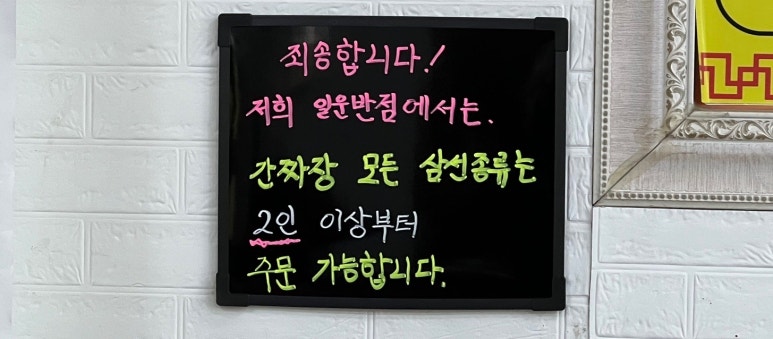 죄송합니다!
저희 일운반점에서는.
간짜장 모든 삼선종류는
2인 이상부터
주문 가능합니다.